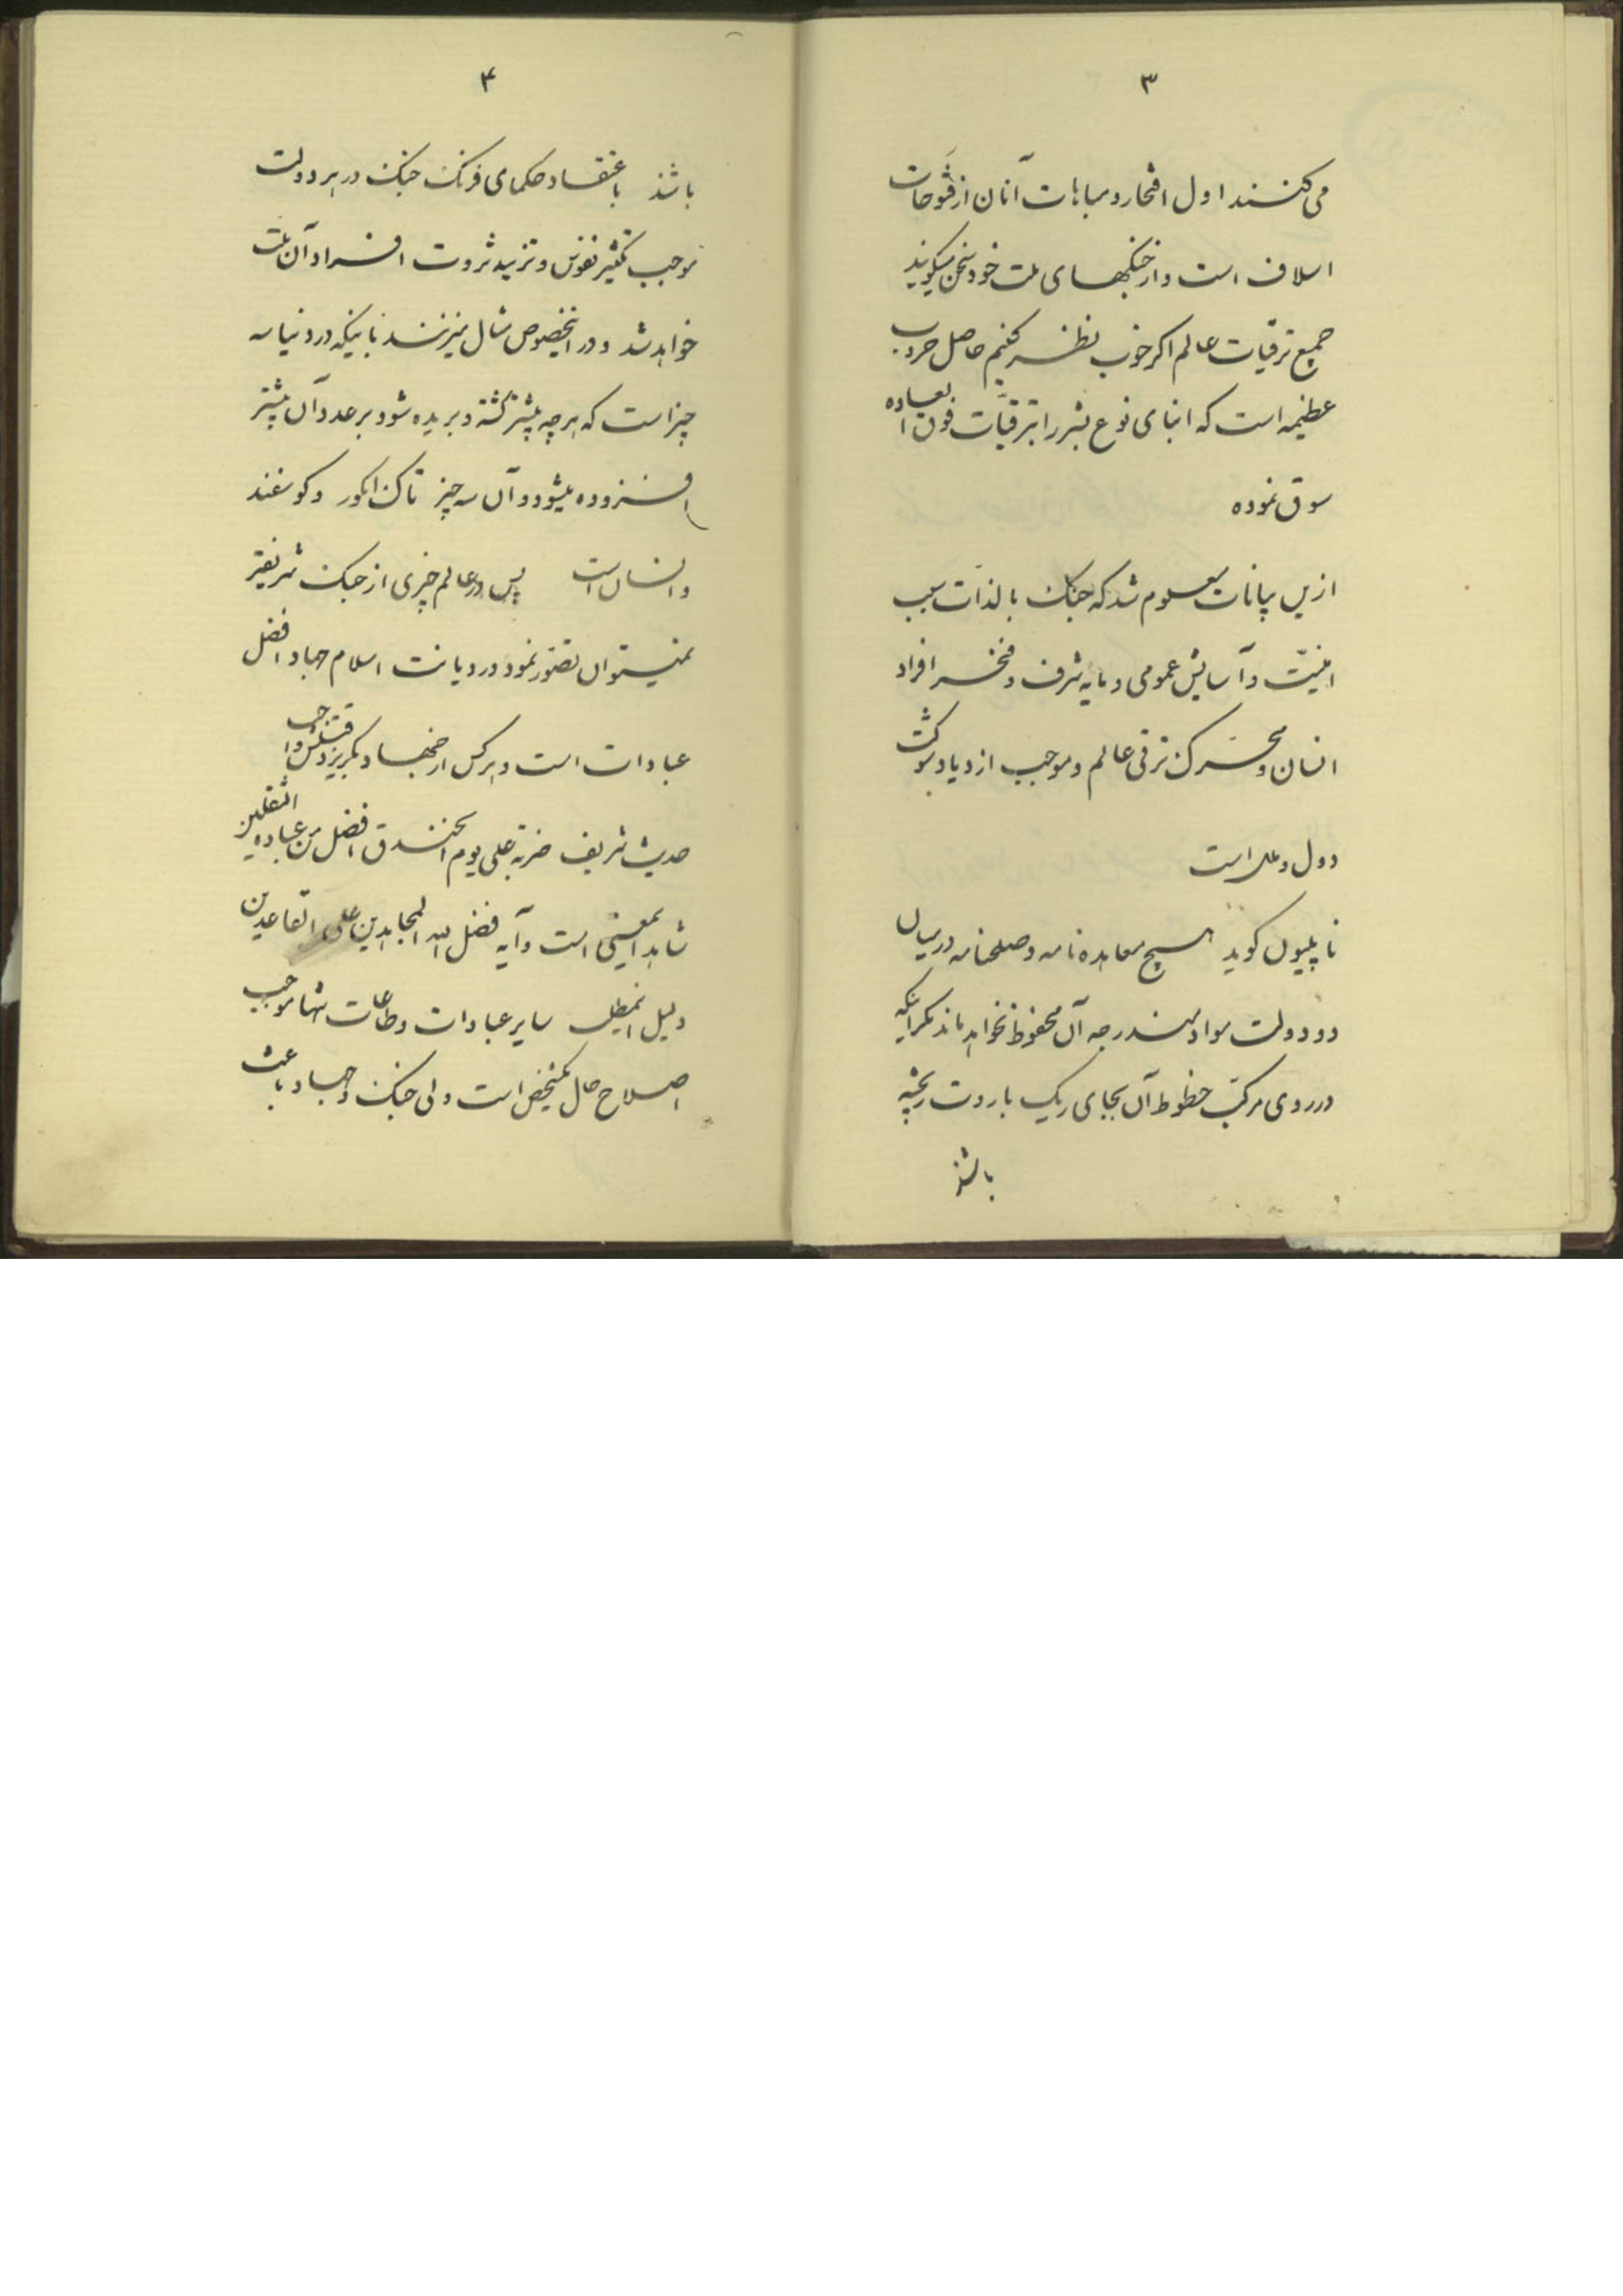 ۳
می کنند اول افتخار و مباهات آنان از فتوحات
اسلاف است و از جنگهای ملت خود سخن میگویند
جمیع ترقیات عالم اگر خوب نظر کنیم حاصل حروب
عظیمه است که ابنای نوع بشر را بترقیات فوق العاده
سوق نموده
ازین بیانات معلوم شد که جنگ بالذات سبب
امنیّت و آسایش عمومی و مایه شرف و فخر افراد
انسان و محرک ترقی عالم و موجب ازدیاد شوکت
دول و ملل است
ناپلیون گوید هیچ معاهده نامه و صلحنامه در میان
دو دولت مواد مندرجه آن محفوظ نخواهد ماند مگر اینکه
در روی مرکب خطوط آن بجای ریک باروت ریخته
باشند
۴
باشند باعتقاد حکمای فرنک جنک در هر دولت
موجب تکثیر نفوس و تزیید ثروت افراد آن ملت
خواهد شد و در اینخصوص مثال میزنند باینکه در دنیا سه
چیز است که هر چه بیشتر کشته و بریده شود بر عدد آن بیشتر
افزوده میشود و آن سه چیز تاک انکور و کوسفند
و انسان است پس در عالم چیزی از جنک شریفتر
نمیتوان تصوّر نمود در دیانت اسلام جهاد افضل
عبادات است و هرکس از جهاد بگریزد قتلش واجب
حدیث شریف ضربة علی یوم الخندق افضل من عبادة الثقلین
شاهد اینمعنی است و آیه فضل الله المجاهدین علی القاعدین
دلیل اینمطلب سایر عبادات و طاعات تنها موجب
اصلاح حال یکشخص است ولی جنک و جهاد باعث